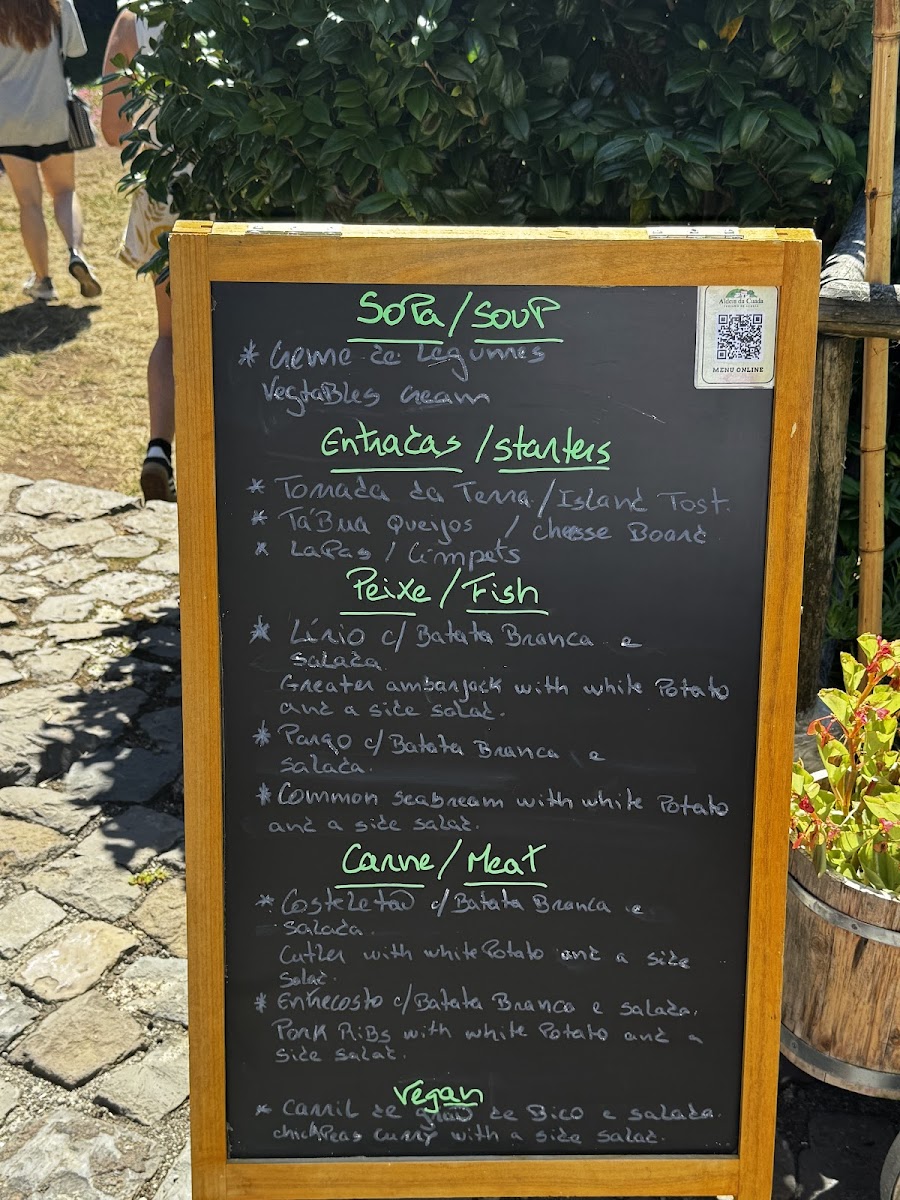 Sopa/Soup
* Creme de Legumes
Vegtables cream
Entradas/starters
* Torrada da Terra/Island Tost.
* Tá'Bua Queijos / Cheese Board
* Lapas / Limpets
Peixe/Fish
* Lírio c/ Batata Branca e
salada.
Greater ambarjack with white Potato
and a side salad.
* Pargo c/ Batata Branca e
salada.
* Common seabream with white Potato
and a side salad.
Carne/Meat
* Costeletão c/ Batata Branca e
salada.
Cutler with white Potato and a side
salad.
* Entrecosto c/ Batata Branca e salada.
Pork Ribs with white Potato and a
side salad.
Vegan
* Carril de grão de Bico e salada.
chickpeas curry with a side salad.
Aldeia da Cuada
MENU ONLINE